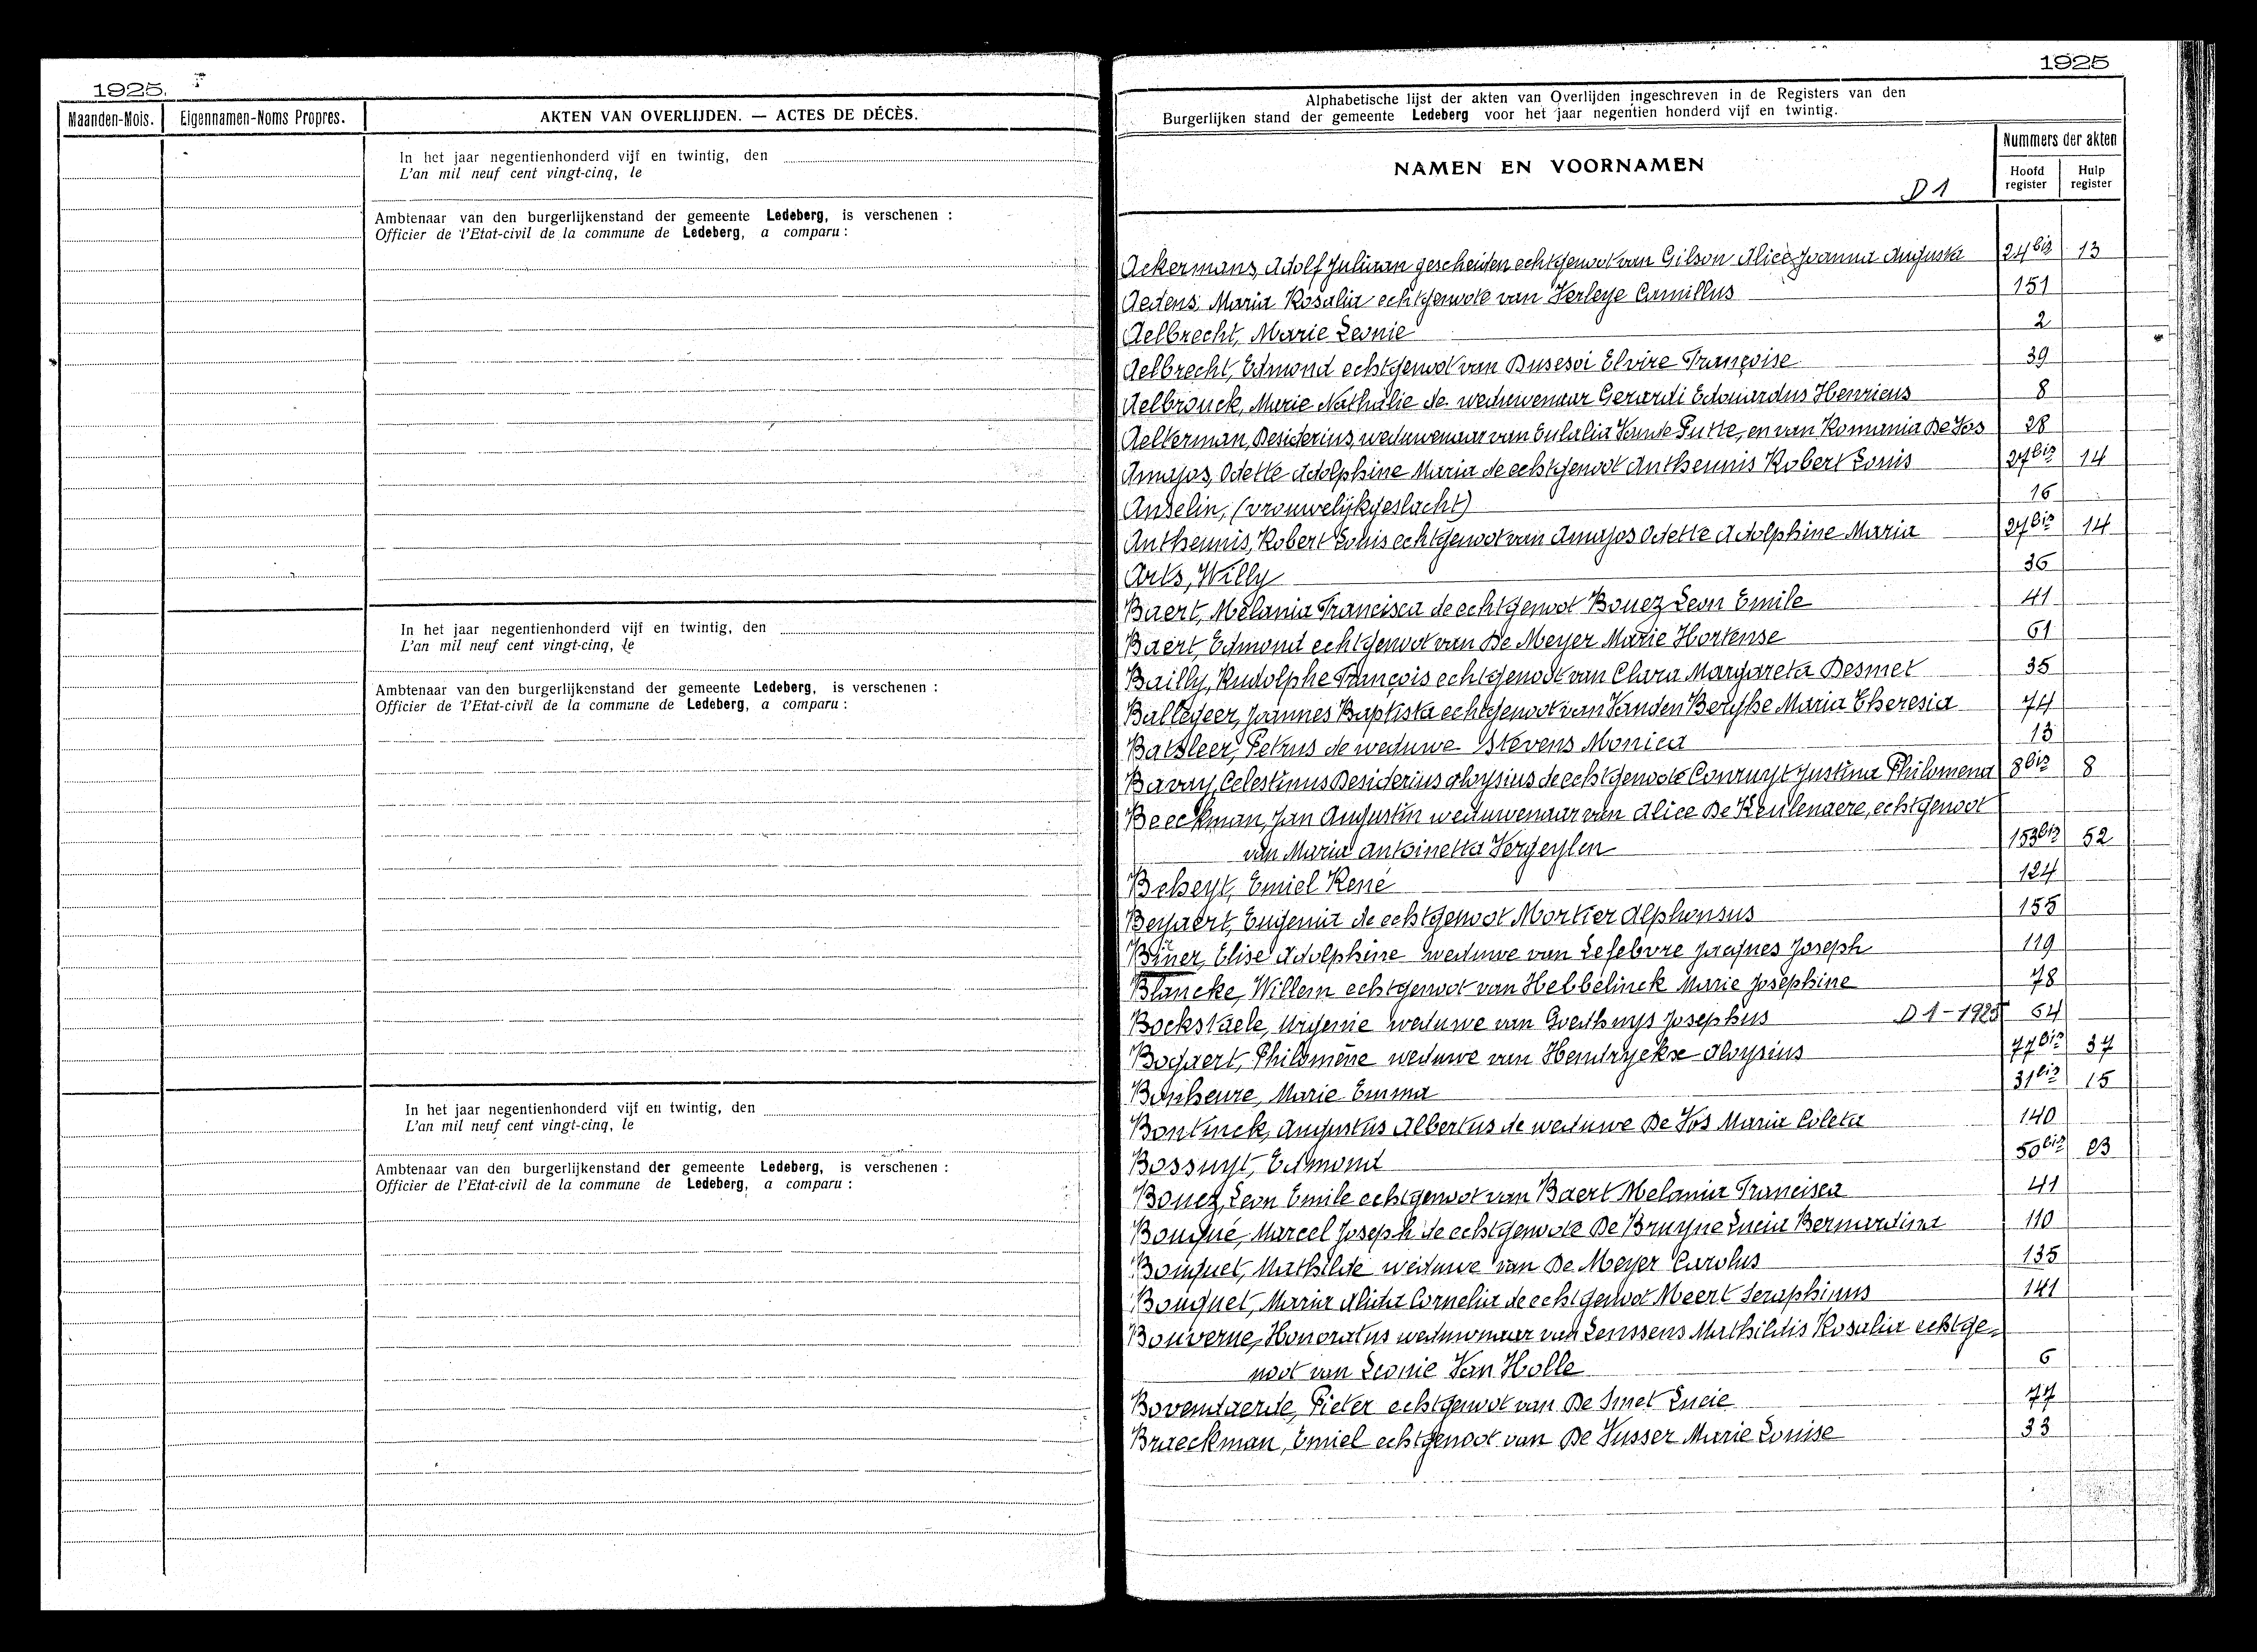 1925.
Maanden-Mois. Eigennamen-Noms Propres. AKTEN VAN OVERLIJDEN. — ACTES DE DÉCÈS.
In het jaar negentienhonderd vijf en twintig, den
L'an mil neuf cent vingt-cinq, le
Ambtenaar van den burgerlijkenstand der gemeente Ledeberg, is verschenen :
Officier de l'Etat-civil de la commune de Ledeberg, a comparu :
In het jaar negentienhonderd vijf en twintig, den
L'an mil neuf cent vingt-cinq, le
Ambtenaar van den burgerlijkenstand der gemeente Ledeberg, is verschenen :
Officier de l'Etat-civil de la commune de Ledeberg, a comparu :
In het jaar negentienhonderd vijf en twintig, den
L'an mil neuf cent vingt-cinq, le
Ambtenaar van den burgerlijkenstand der gemeente Ledeberg, is verschenen :
Officier de l'Etat-civil de la commune de Ledeberg, a comparu :
1925
Alphabetische lijst der akten van Overlijden ingeschreven in de Registers van den
Burgerlijken stand der gemeente Ledeberg voor het jaar negentien honderd vijf en twintig.
NAMEN EN VOORNAMEN
Nummers der akten
Hoofd register
Hulp register
D 1
Ackermans, Adolf Juliaan gescheiden echtgenoot van Gilson Alice Joanna Augusta 24bis 13
Aedens, Maria Rosalia echtgenote van Verleye Camillus 151
Aelbrecht, Marie Leonie 2
Aelbrecht, Edmond echtgenoot van Dusesoi Elvire Françoise 39
Aelbrouck, Marie Nathalie de weduwenaar Gerardi Edouardus Henricus 8
Aelterman, Desiderius, weduwenaar van Eulalia Vande Putte, en van Romania De Vos 28
Amayos, Odette Adolphine Maria de echtgenoot Antheunis Robert Louis 27bis 14
Anselin, (vrouwelijk geslacht) 16
Antheunis, Robert Louis echtgenoot van Amayos Odette Adolphine Maria 27bis 14
Arts, Willy 36
Baert, Melania Francisca de echtgenoot Bouez Leon Emile 41
Baert, Edmond echtgenoot van De Meyer Marie Hortense 61
Bailly, Rudolphe François echtgenoot van Clara Margareta Desmet 35
Ballegeer, Joannes Baptista echtgenoot van Vanden Berghe Maria Theresia 74
Batsleer, Petrus de weduwe Stevens Monica 13
Bavay, Celestinus Desiderius Aloysius de echtgenote Conruyt Justina Philomena 8bis 8
Beeckman, Jan Augustin weduwenaar van Alice De Keulenaere, echtgenoot
van Maria Antoinetta Vergeylen 153bis 52
Beheyt, Emiel René 124
Beyaert, Eugenia de echtgenoot Mortier Alphonsus 155
Biner, Elise Adolphine weduwe van Lefebvre Jacques Joseph 119
Blancke, Willem echtgenoot van Hebbelinck Marie Josephine 78
Bockstaele, Virginie weduwe van Goethuys Josephus D 1 - 1925 64
Bogaert, Philomène weduwe van Hendryckse Aloysius 77bis 37
Bonheure, Marie Emma 31bis 15
Bontinck, Augustus Albertus de weduwe De Vos Maria Coleta 140
Bossuyt, Edmond 50bis 23
Bouez, Leon Emile echtgenoot van Baert Melania Francisca 41
Bouqué, Marcel Joseph de echtgenote De Bruyne Lucia Bernardina 110
Bouquet, Mathilde weduwe van De Meyer Carolus 135
Bouquet, Maria Alida Cornelia de echtgenoot Meert Seraphinus 141
Bouverne, Honoratus weduwenaar van Lenssens Mathildis Rosalia echtge-
noot van Leonie Van Holle 6
Bovendaerde, Pieter echtgenoot van De Smet Lucie 77
Braeckman, Emiel echtgenoot van De Vusser Marie Louise 33